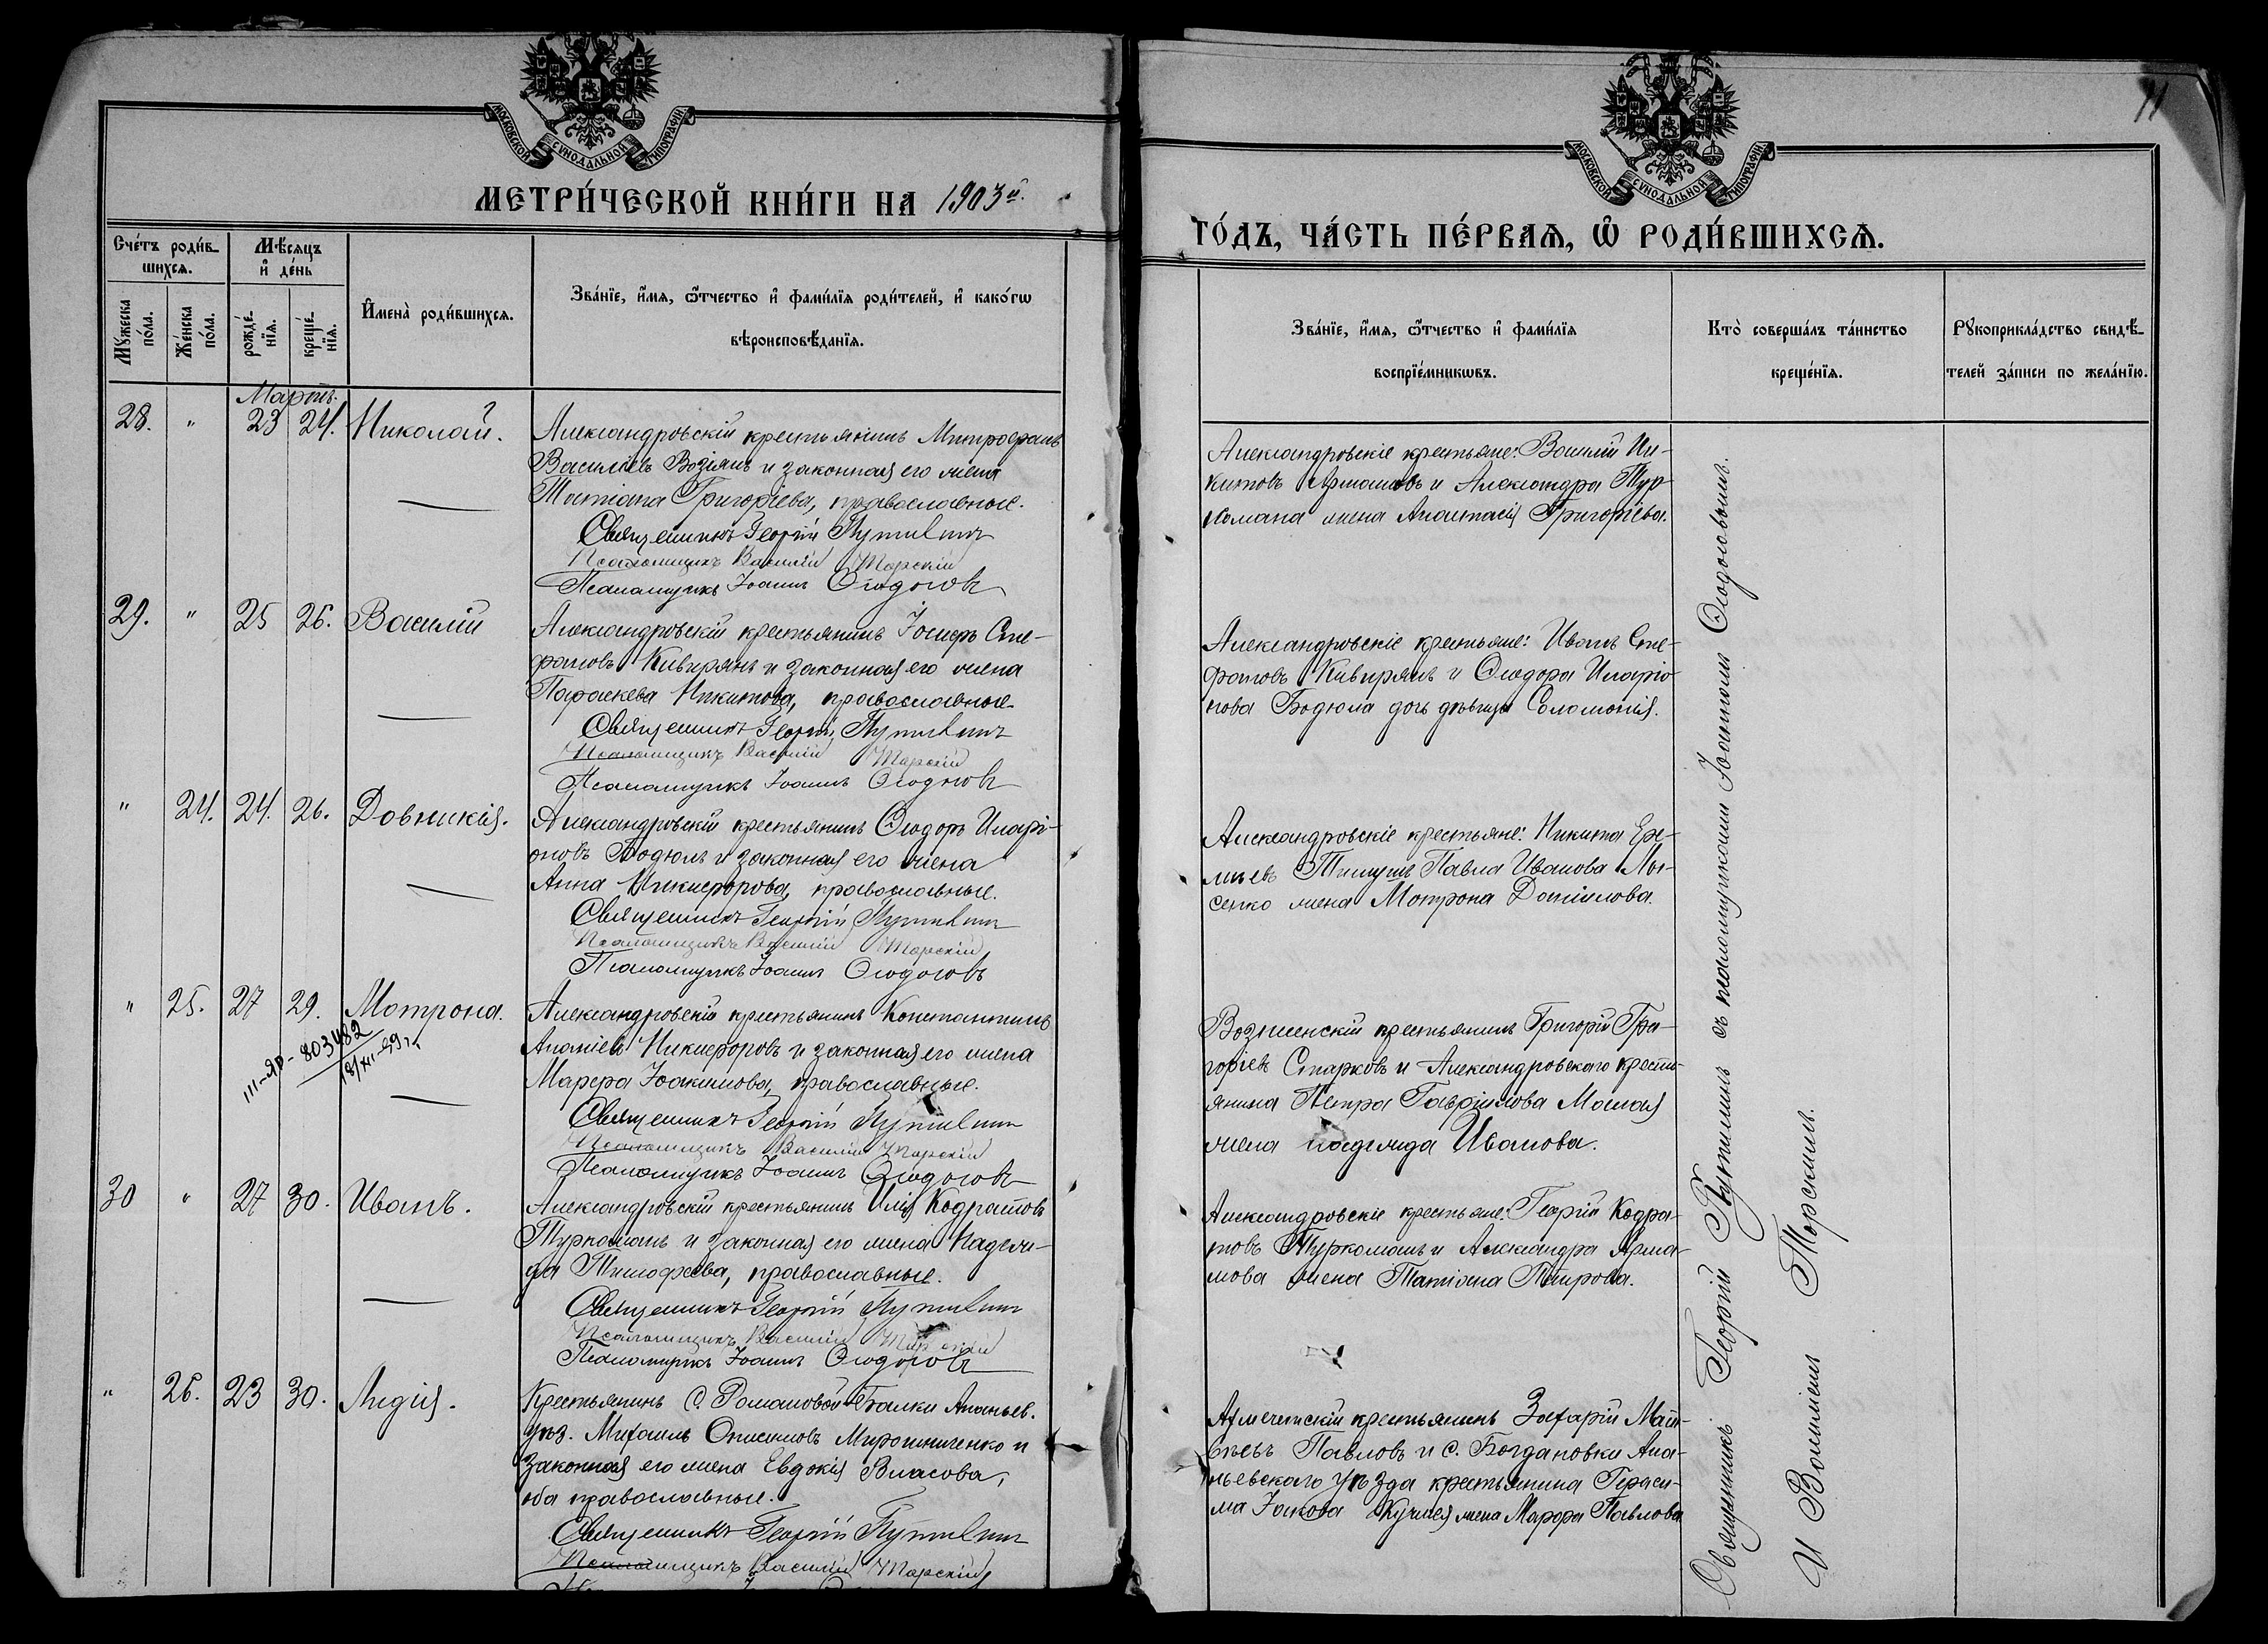 МОСКОВСКОЙ СѴНОДАЛЬНОЙ ТИПОГРАФІИ.
МЕТРИ́ЧЕСКОЙ КНИ́ГИ НА 1903й.
Сче́тъ роди́в-
шихсѧ.
Мѣ́сѧцъ
и҆ де́нь
Мꙋ́жеска
по́ла.
Же́нска
по́ла.
рожде́-
нїѧ.
креще́-
нїѧ.
И҆мена̀ роди́вшихсѧ.
Зва́нїе, и҆́мѧ, ѻ҆́тчество и҆ фами́лїѧ роди́телей, и҆ како́гѡ
вѣроисповѣ́данїѧ.
Мартъ.
28. " 23 24. Николай.
Александровскій крестьянинъ Митрофанъ
Василіевъ Возіянъ и законная его жена
Татіана Григоріева, православные.
Священникъ Георгій Путивлин
Псаломщикъ Василій Марскій
Псаломщикъ Іоаннъ Ѳеодоровъ
29. " 25 26. Василій
Александровскій крестьянинъ Іосифъ Сте-
фановъ Кивирянъ и законная его жена
Параскева Никитова, православные.
Священникъ Георгій Путивлин
Псаломщикъ Василій Марскій
Псаломщикъ Іоаннъ Ѳеодоровъ
" 24. 24. 26. Довникія.
Александровскій крестьянинъ Ѳеодоръ Иларі-
оновъ Бодюлъ и законная его жена
Анна Никифорова, православные.
Священникъ Георгій Путивлин
Псаломщикъ Василій Марскій
Псаломщикъ Іоаннъ Ѳеодоровъ
" 25. 27 29. Мотрона.
III-ЯР-803482
Александровскій крестьянинъ Константинъ
Ананіевъ Никифоровъ и законная его жена
Марѳа Іоакимова, православные.
Священникъ Георгій Путивлин
Псаломщикъ Василій Марскій
Псаломщикъ Іоаннъ Ѳеодоровъ
30 " 27 30. Иванъ.
Александровскій крестьянинъ Илія Кодратовъ
Туркоманъ и законная его жена Надеж-
да Тимофеева, православные.
Священникъ Георгій Путивлин
Псаломщикъ Василій Марскій
Псаломщикъ Іоаннъ Ѳеодоровъ
" 26. 23 30. Лидія.
Крестьянинъ с. Романовой-Балки Ананьев.
уѣз. Михаилъ Онисимовъ Мирошниченко и
законная его жена Евдокія Власова,
оба православные.
Священникъ Георгій Путивлин
Псаломщикъ Василій Марскій
11
МОСКОВСКОЙ СѴНОДАЛЬНОЙ ТИПОГРАФІИ.
ГО́ДЪ, ЧА́СТЬ ПЕ́РВАѦ, Ѡ҆ РОДИ́ВШИХСѦ.
Зва́нїе, и҆́мѧ, ѻ҆́тчество и҆ фами́лїѧ
воспрїе́мникѡвъ.
Кто̀ соверша́лъ та́инство
креще́нїѧ.
Рꙋкоприкла́дство свидѣ́-
телей за́писи по жела́нїю.
Александровскіе крестьяне: Василій Ни-
китовъ Армашовъ и Александра Тур
комана жена Анастасія Григоріева.
Александровскіе крестьяне: Иванъ Сте-
фановъ Кивирянъ и Ѳеодора Иларіо
нова Бодюла дочь дѣвица Соломонія.
Александровскіе крестьяне: Никита Ере-
миевъ Павла Иванова Лы-
сенко жена Мотрона Даніилова.
Вознесенскій крестьянинъ Григорій Гри-
горіевъ Старковъ и Александровскаго кресть-
янина Петра Гавриилова
жена Надежда Иванова.
Александровскіе крестьяне: Георгій Кодра-
товъ Туркоманъ и Александра Арма-
жена Татіана Петрова.
Ахмечетскій крестьянинъ Захарій Мат-
вѣевъ Павловъ и с. Богдановки Ана-
ньевскаго уѣзда крестьянина Гераси-
ма Іакова жена Марѳа Павлова
Священникъ Георгій Путивлинъ съ псаломщиками Іоанномъ Ѳеодоровымъ.
и Василіемъ Марскимъ.